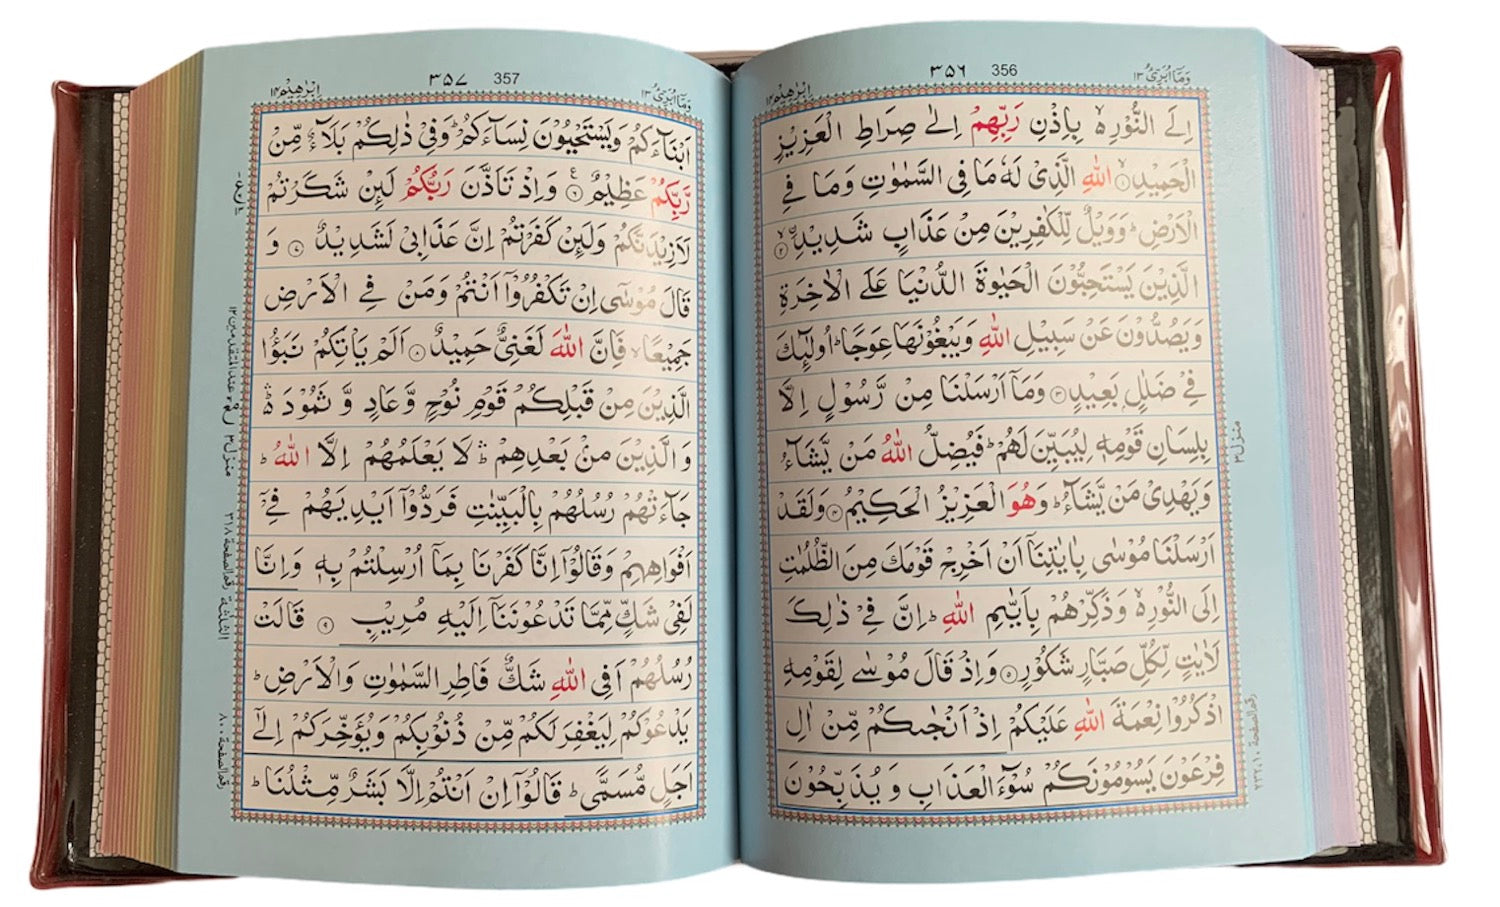 وَمَآ اُبَرِّئُ ١٣
٣٥٦ 356
اِبْرٰهِيْم ١٤
اِلَى النُّوْرِ ۙ بِاِذْنِ رَبِّهِمْ اِلٰى صِرَاطِ الْعَزِيْزِ
الْحَمِيْدِ ۙ ١ اللّٰهِ الَّذِىْ لَهٗ مَا فِى السَّمٰوٰتِ وَمَا فِى
الْاَرْضِ ؕ وَوَيْلٌ لِّلْكٰفِرِيْنَ مِنْ عَذَابٍ شَدِيْدِ ۙ ٢
الَّذِيْنَ يَسْتَحِبُّوْنَ الْحَيٰوةَ الدُّنْيَا عَلَى الْاٰخِرَةِ
وَيَصُدُّوْنَ عَنْ سَبِيْلِ اللّٰهِ وَيَبْغُوْنَهَا عِوَجًا ؕ اُولٰٓئِكَ
فِىْ ضَلٰلٍۭ بَعِيْدٍ ٣ وَمَآ اَرْسَلْنَا مِنْ رَّسُوْلٍ اِلَّا
بِلِسَانِ قَوْمِهٖ لِيُبَيِّنَ لَهُمْ ؕ فَيُضِلُّ اللّٰهُ مَنْ يَّشَآءُ
وَيَهْدِىْ مَنْ يَّشَآءُ ؕ وَهُوَ الْعَزِيْزُ الْحَكِيْمُ ٤ وَلَقَدْ
اَرْسَلْنَا مُوْسٰى بِاٰيٰتِنَآ اَنْ اَخْرِجْ قَوْمَكَ مِنَ الظُّلُمٰتِ
اِلَى النُّوْرِ ۙ وَذَكِّرْهُمْ بِاَيّٰىمِ اللّٰهِ ؕ اِنَّ فِىْ ذٰلِكَ
لَاٰيٰتٍ لِّكُلِّ صَبَّارٍ شَكُوْرٍ ٥ وَاِذْ قَالَ مُوْسٰى لِقَوْمِهِ
اذْكُرُوْا نِعْمَةَ اللّٰهِ عَلَيْكُمْ اِذْ اَنْجٰىكُمْ مِّنْ اٰلِ
فِرْعَوْنَ يَسُوْمُوْنَكُمْ سُوْٓءَ الْعَذَابِ وَ يُذَبِّحُوْنَ
منزل ٣
وَمَآ اُبَرِّئُ ١٣
٣٥٧ 357
اِبْرٰهِيْم ١٤
اَبْنَآءَكُمْ وَيَسْتَحْيُوْنَ نِسَآءَكُمْ ؕ وَفِىْ ذٰلِكُمْ بَلَآءٌ مِّنْ
رَّبِّكُمْ عَظِيْمٌ ٦ ع وَاِذْ تَاَذَّنَ رَبُّكُمْ لَئِنْ شَكَرْتُمْ
لَاَزِيْدَنَّكُمْ وَلَئِنْ كَفَرْتُمْ اِنَّ عَذَابِىْ لَشَدِيْدٌ ٧ وَ
قَالَ مُوْسٰٓى اِنْ تَكْفُرُوْٓا اَنْتُمْ وَمَنْ فِى الْاَرْضِ
جَمِيْعًا ۙ فَاِنَّ اللّٰهَ لَغَنِىٌّ حَمِيْدٌ ٨ اَلَمْ يَاْتِكُمْ نَبَؤُا
الَّذِيْنَ مِنْ قَبْلِكُمْ قَوْمِ نُوْحٍ وَّعَادٍ وَّ ثَمُوْدَ ۛ ؕ
وَ الَّذِيْنَ مِنْۢ بَعْدِهِمْ ۛ ؕ لَا يَعْلَمُهُمْ اِلَّا اللّٰهُ ؕ
جَآءَتْهُمْ رُسُلُهُمْ بِالْبَيِّنٰتِ فَرَدُّوْٓا اَيْدِيَهُمْ فِىْٓ
اَفْوَاهِهِمْ وَقَالُوْٓا اِنَّا كَفَرْنَا بِمَآ اُرْسِلْتُمْ بِهٖ وَاِنَّا
لَفِىْ شَكٍّ مِّمَّا تَدْعُوْنَنَآ اِلَيْهِ مُرِيْبٍ ٩ قَالَتْ
رُسُلُهُمْ اَفِى اللّٰهِ شَكٌّ فَاطِرِ السَّمٰوٰتِ وَالْاَرْضِ ؕ
يَدْعُوْكُمْ لِيَغْفِرَ لَكُمْ مِّنْ ذُنُوْبِكُمْ وَيُؤَخِّرَكُمْ اِلٰٓى
اَجَلٍ مُّسَمًّى ؕ قَالُوْٓا اِنْ اَنْتُمْ اِلَّا بَشَرٌ مِّثْلُنَا ؕ
منزل ٣